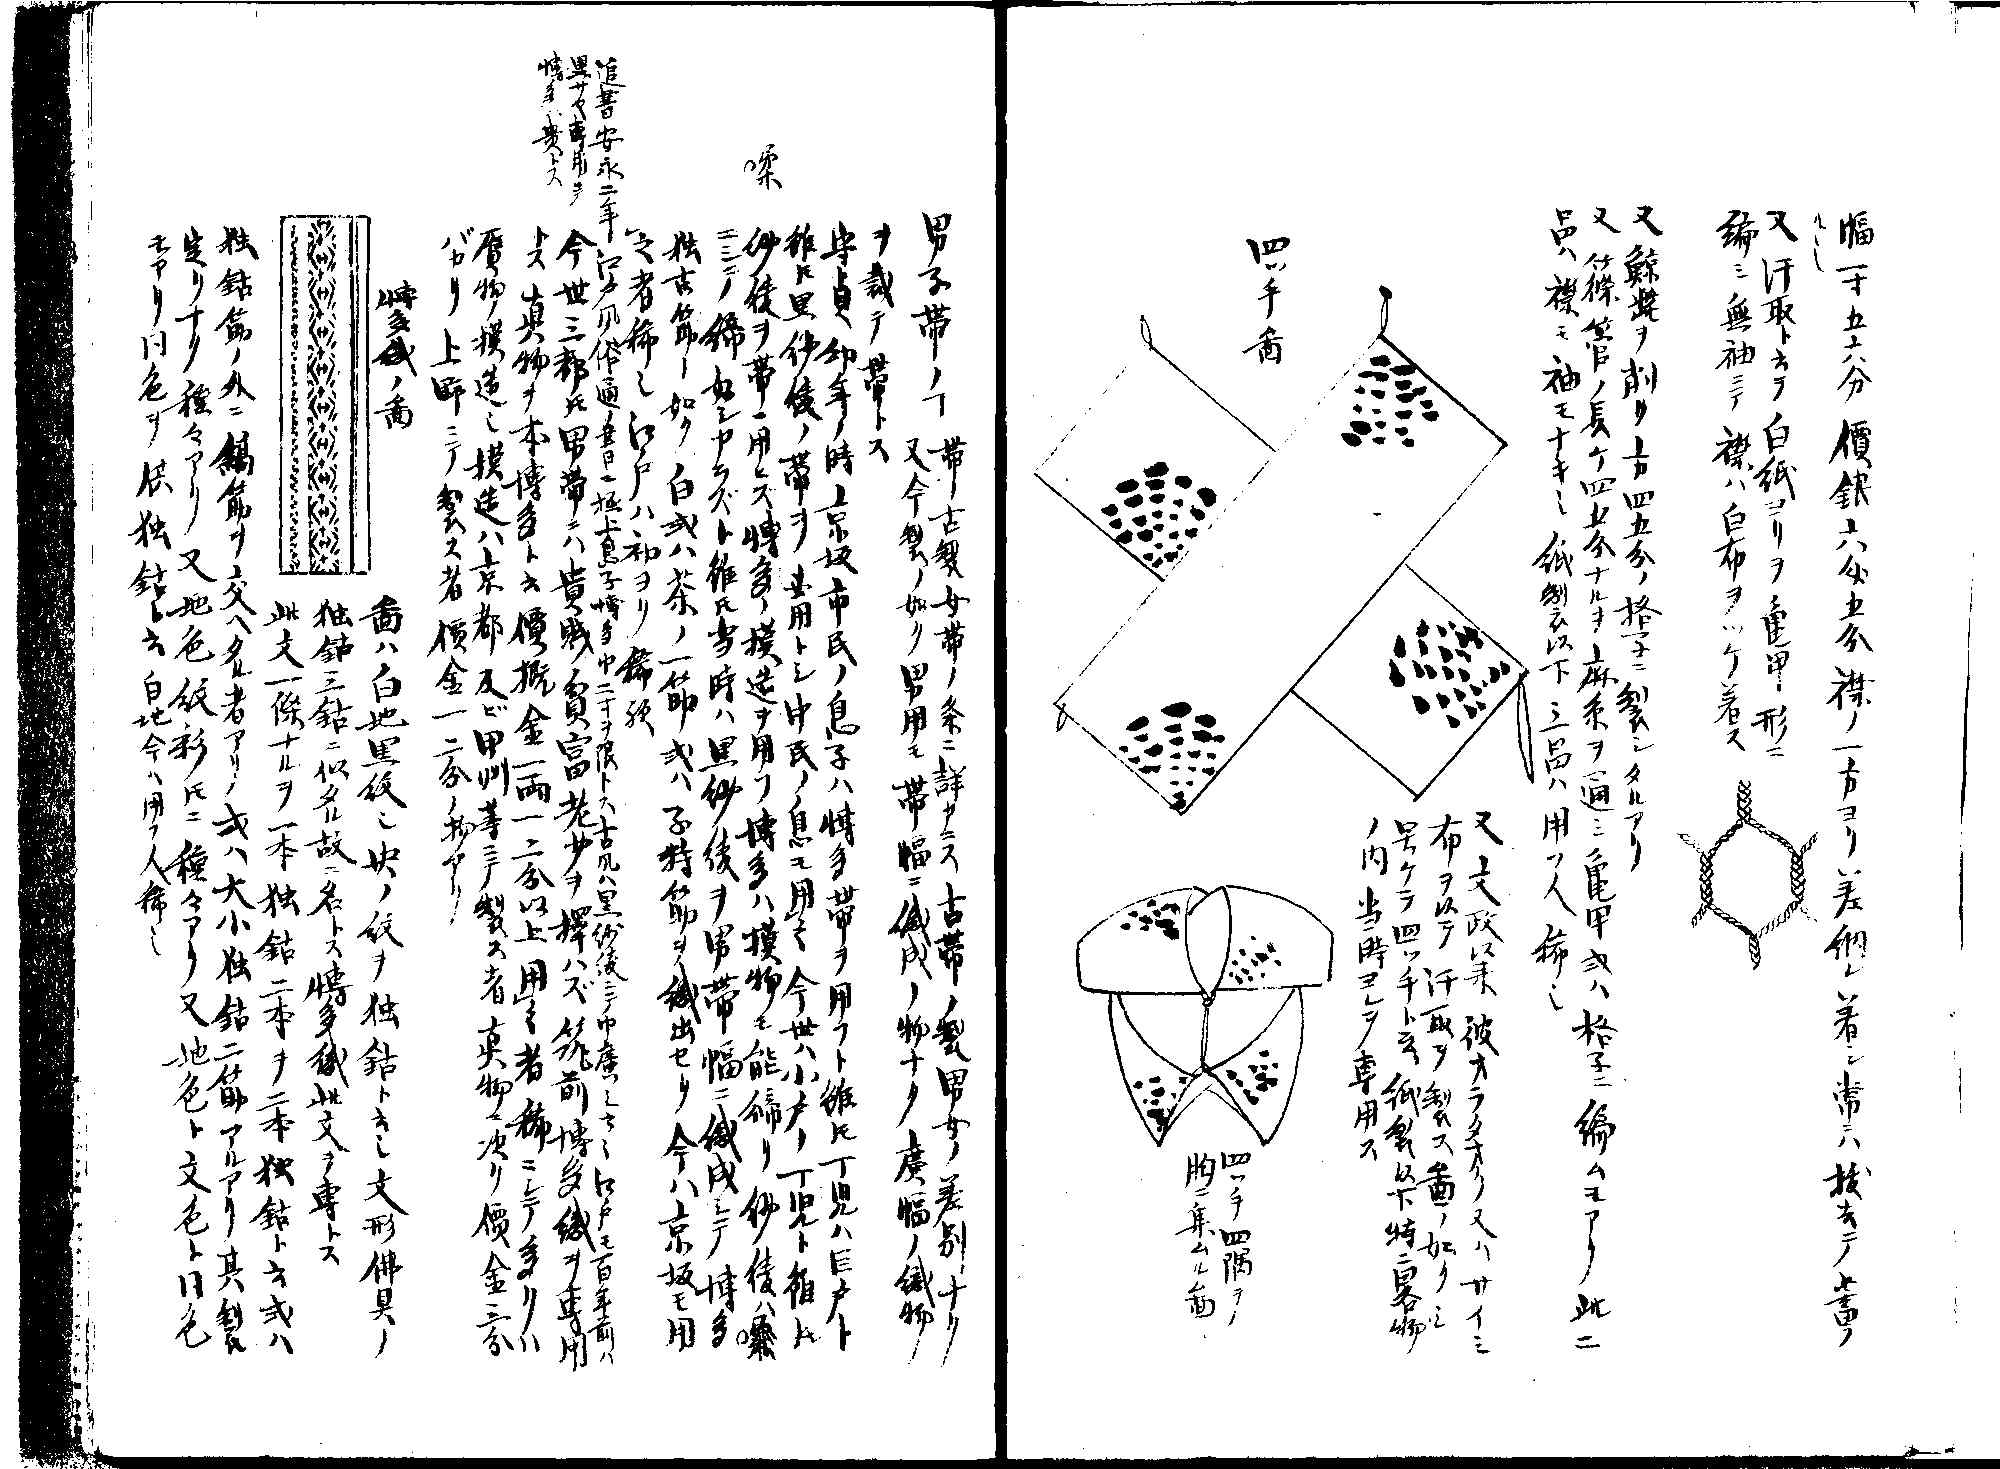 幅一寸五六分價銀六匁五分襟ノ一方ヨリ差細シ着シ常ニハ抜去テ畜フ
ベシ
又汗取ト云テ白紙ヨリヲ亀甲ノ形ニ
編ミ無袖ニテ襟ハ白布ヲツケ着ス
又鯨髭ヲ削リ方四五分ノ格子ニ製シタルアリ
又篠管ノ長ケ四五分ナルヲ麻糸ヲ通シ亀甲或ハ格子ニ編ムモアリ此二
品ハ襟モ袖モナキ也紙製以下三品ハ用フ人稀也
四ツ手圖
又文政以来彼オラタオリ又ハサイミ
布ヲ以テ汗取ヲ製ス圖ノ如クシ
号ケテ四ツ手ト云紙製以下特ニ畧物
ノ内当時ヨシテ専用ス
四ツ手四隅ヲ
胸ニ集ムル圖
男子帯ノ丁 帯ノ古製女帯ノ条ニ詳カニス古帯ノ製男女ノ差別ナク
又今製ノ如ク男用モ帯幅ニ織成ノ物ナク廣幅ノ織物
ヲ裁テ帯トス
守貞幼年ノ時京坂市民ノ息子ハ博多帯ヲ用フト雖ドモ丁児ハ巨戸ト
雖ドモ黒紗綾ノ帯ヲ専用トシ中民ノ息モ用之今世ハ小戸ノ丁児ト雖ドモ
紗綾ヲ帯ニ用ヒズ博多ノ模造ヲ用フ博多ハ模物モ能締リ紗綾ハ嗓
ニシテ締如シカラズト雖ドモ当時ハ黒紗綾ヲ男帯幅ニ織成シテ博多
独古筋ノ如ク白或ハ茶ノ一筋或ハ子持筋ヲ織出セリ今ハ京坂モ用
之者稀也江戸ハ初ヨリ稀欤
江戸風俗通ノ書曰極上息子博多巾二寸ヲ限トス古風ハ黒紗綾三寸巾廣シ江戸モ百年前ハ
今世三都トモ男帯ニハ貴賤貧富老少ヲ擇バズ筑前博多織ヲ専用
トス真物ヲ本博多ト云價概金一両一二分以上用之者稀ニシテ多クハ
贋物ノ模造也模造ハ京都及ビ甲州等ニテ製ス者真物ニ次リ價金三分
バカリ上野ニテ製ス者價金一二分ノ物アリ
嗓
追書安永二年
黒サヤ専用ヲ
博多ハ貴トス
博多織ノ圖
圖ハ白地黒紋也央ノ紋ヲ独鈷ト云也文形佛具ノ
独鈷三鈷ニ似タル故ニ名トス博多織此文ヲ専トス
此文一條ナルヲ一本独鈷二本ヲ二本独鈷ト云或ハ
独鈷筋ノ外ニ縞筋ヲ交ヘタル者アリ或ハ大小独鈷二筋アルアリ其製
定リナク種々アリ又地色紋形トモニ種々アリ又地色ト文色ト同色
モアリ同色ヲ供独鈷ト云白地今ハ用フ人稀也